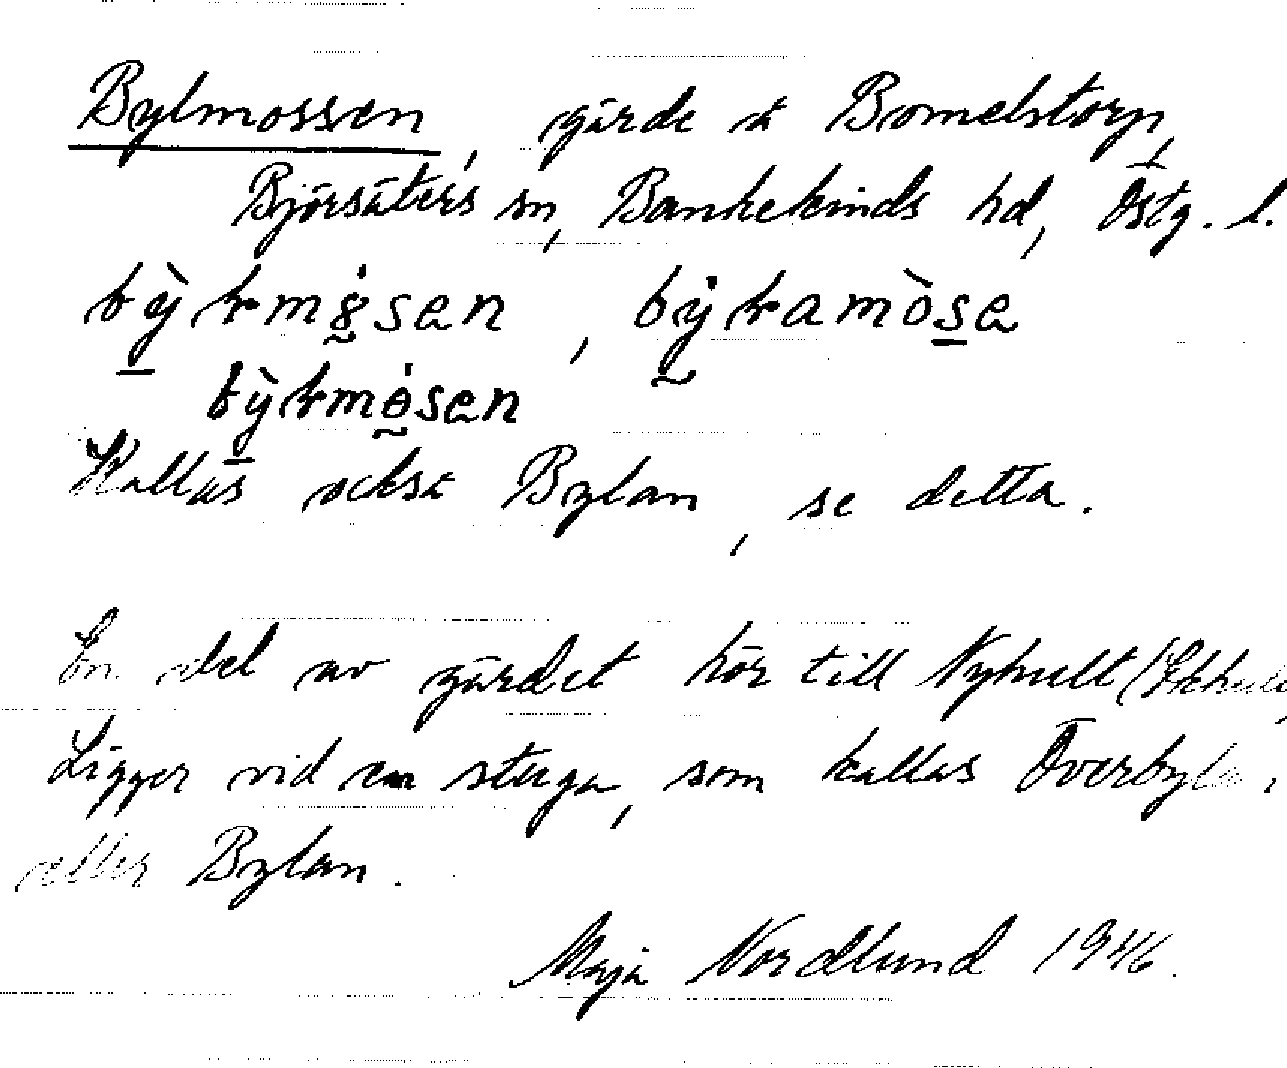 Bylmossen, gärde å Bomelstorp,
Björsäters sn, Bankekinds hd, Östg. l.
Kallas också Bylan, se detta.
En del av gärdet hör till Nyhult
Ligger vid en stuga, som kallas Överbylan,
eller Bylan.
Maja Nordlund 1946.